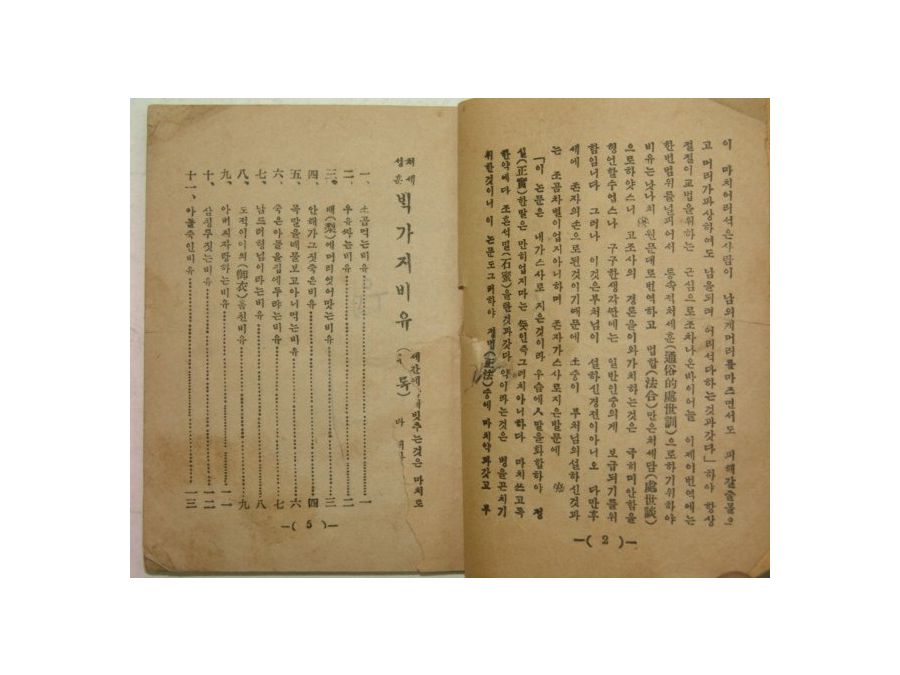 이 마치어리석은사람이 남의게머리를마즈면서도 피해갈줄몰으
고 머리가파상하여도 남을되며 어리석다하는것과갓다」하야 항상
절절이교법을위하는 근심으로조차나온바이어늘 이제이번역에는
한번범위를널피어서 통속적처세훈(通俗的處世訓)으로하기위하야
비유는낫나치 원문대로번역하고 법합(法合)만은처세담(處世談)
으로하얏스니 고조사의 경론을이와가치하는것은 극히미안함을
형언할수업스나 구구한생각만에는 일반인중의게 보급되기를위
함임니다 그러나 이것은부처님이 설하신경전이아니오 다만후
세에 존자의손으로된것이기때문에 부처님의설하신것과
는 조곰차별이업지아니하며 존자가스사로지은발문에
「이 논문은 내가스사로 지은것이라 우슴에人말을화합하야 정
실(正實)한말은 만히업지마는 뜻인즉그러치아니하다 마치쓰고독
한약에다 조흔석밀(石蜜)을탄것과갓다 약이라는것은 병을곤치기
위한것이니 이 논문도그러하야 정법(正法)중에 마치약과갓고 우
—(2)—
세간에 빗추는것은 마치로
처세
성훈 빅가지비유
一、소곰먹는비유…一
二、우유짜는비유…二
三、배(梨)에머리엇어맛는비유…三
四、안해가그짓죽은비유…四
五、목말을때물보고아니먹는비유…六
六、죽은아들을집에두랴는비유…七
七、남드러형님이라는비유…八
八、도적이의(御衣)훔친비유…九
九、아버지자랑하는비유…一一
十、삼칭루짓는비유…一二
十一、아들죽인비유…一三
—(5)—